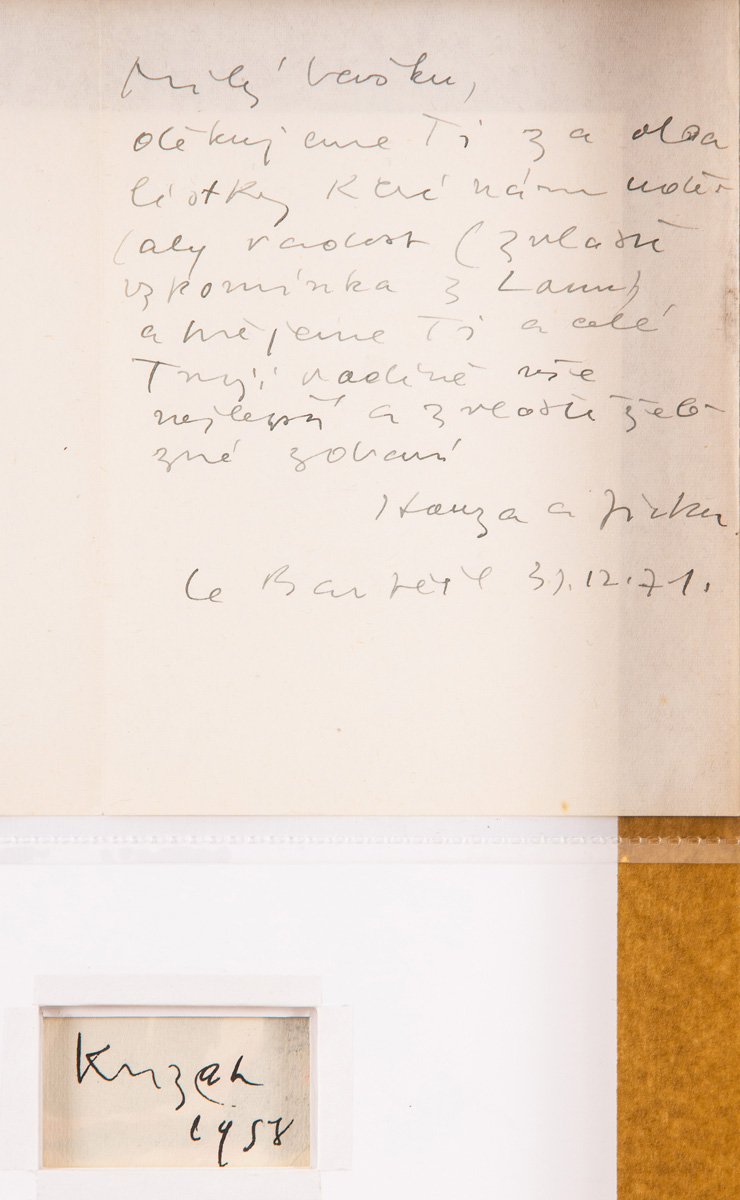 Milý Vašku,
děkujeme Ti za oba
lístky které nám udě-
laly radost (zvláště
vzpomínka z Louny)
a přejeme Ti a celé
Tvojí rodině vše
nejlepší a zvláště žele-
zné zdraví
Honza a Jirka
Le Bar 31.12.71.
1958